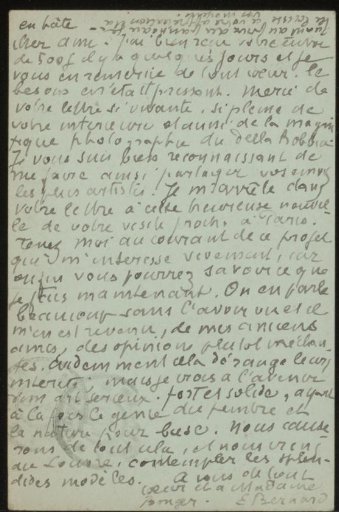 en hâte
cher ami. J'ai bien reçu votre envoi
de 500 f il y a quelques jours et je
vous en remercie de tout cœur. Le
besoin en était pressant. Merci de
votre lettre si vivante, si pleine de
votre intérieur et aussi de la magni
fique photographie du della Robbia.
Je vous suis bien reconnaissant de
me faire ainsi partager vos
les plus artistes. Je m'arrête dans
votre lettre à cette heureuse nouvel
le de votre visite proch. à Paris.
Tenez moi au courant de ce projet
qui m'intéresse vivement, car
enfin vous pourrez savoir ce que
je fais maintenant. On en parle
beaucoup sans l'avoir vu et il
m'en est revenu, de mes anciens
amis, des opinions plutôt méchan
tes. Evidemment cela dérange leurs
intérêts; mais je crois à l'avenir
d'un art sérieux. fort et solide, ayant
à la fois le génie du peintre et
la nature pour base. Nous cause
rons de tout cela, et nous irons
au Louvre, contempler les splen
dides modèles. A vous de tout
cœur et à Madame
E Bernard